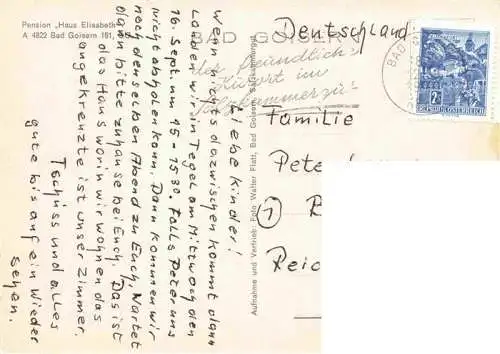 Pension „Haus Elisabeth“
A 4822 Bad Goisern 161,
BAD GOISERN
der freundliche
Kurort im
Salzkammergut
BAD
2 S
REPUBLIK ÖSTERREICH
Deutschland
Familie
Peter
1
Reic
Aufnahme und Vertrieb: Foto Walter Flatt, Bad Goisern, Salzkammergut
Liebe Kinder!
Wenn nichts dazwischen kommt dann
landen wir in Tegel am Mittwoch den
16. Sept. um 15 - 15 30. Falls Peter uns
nicht abholen kann. Dann kommen wir
noch denselben Abend zu Euch. Wartet
dann bitte zuhause bei Euch. Das ist
das Haus worin wir wohnen das
angekreuzte ist unser Zimmer.
Tschüss und alles
gute bis auf ein Wieder
sehen.